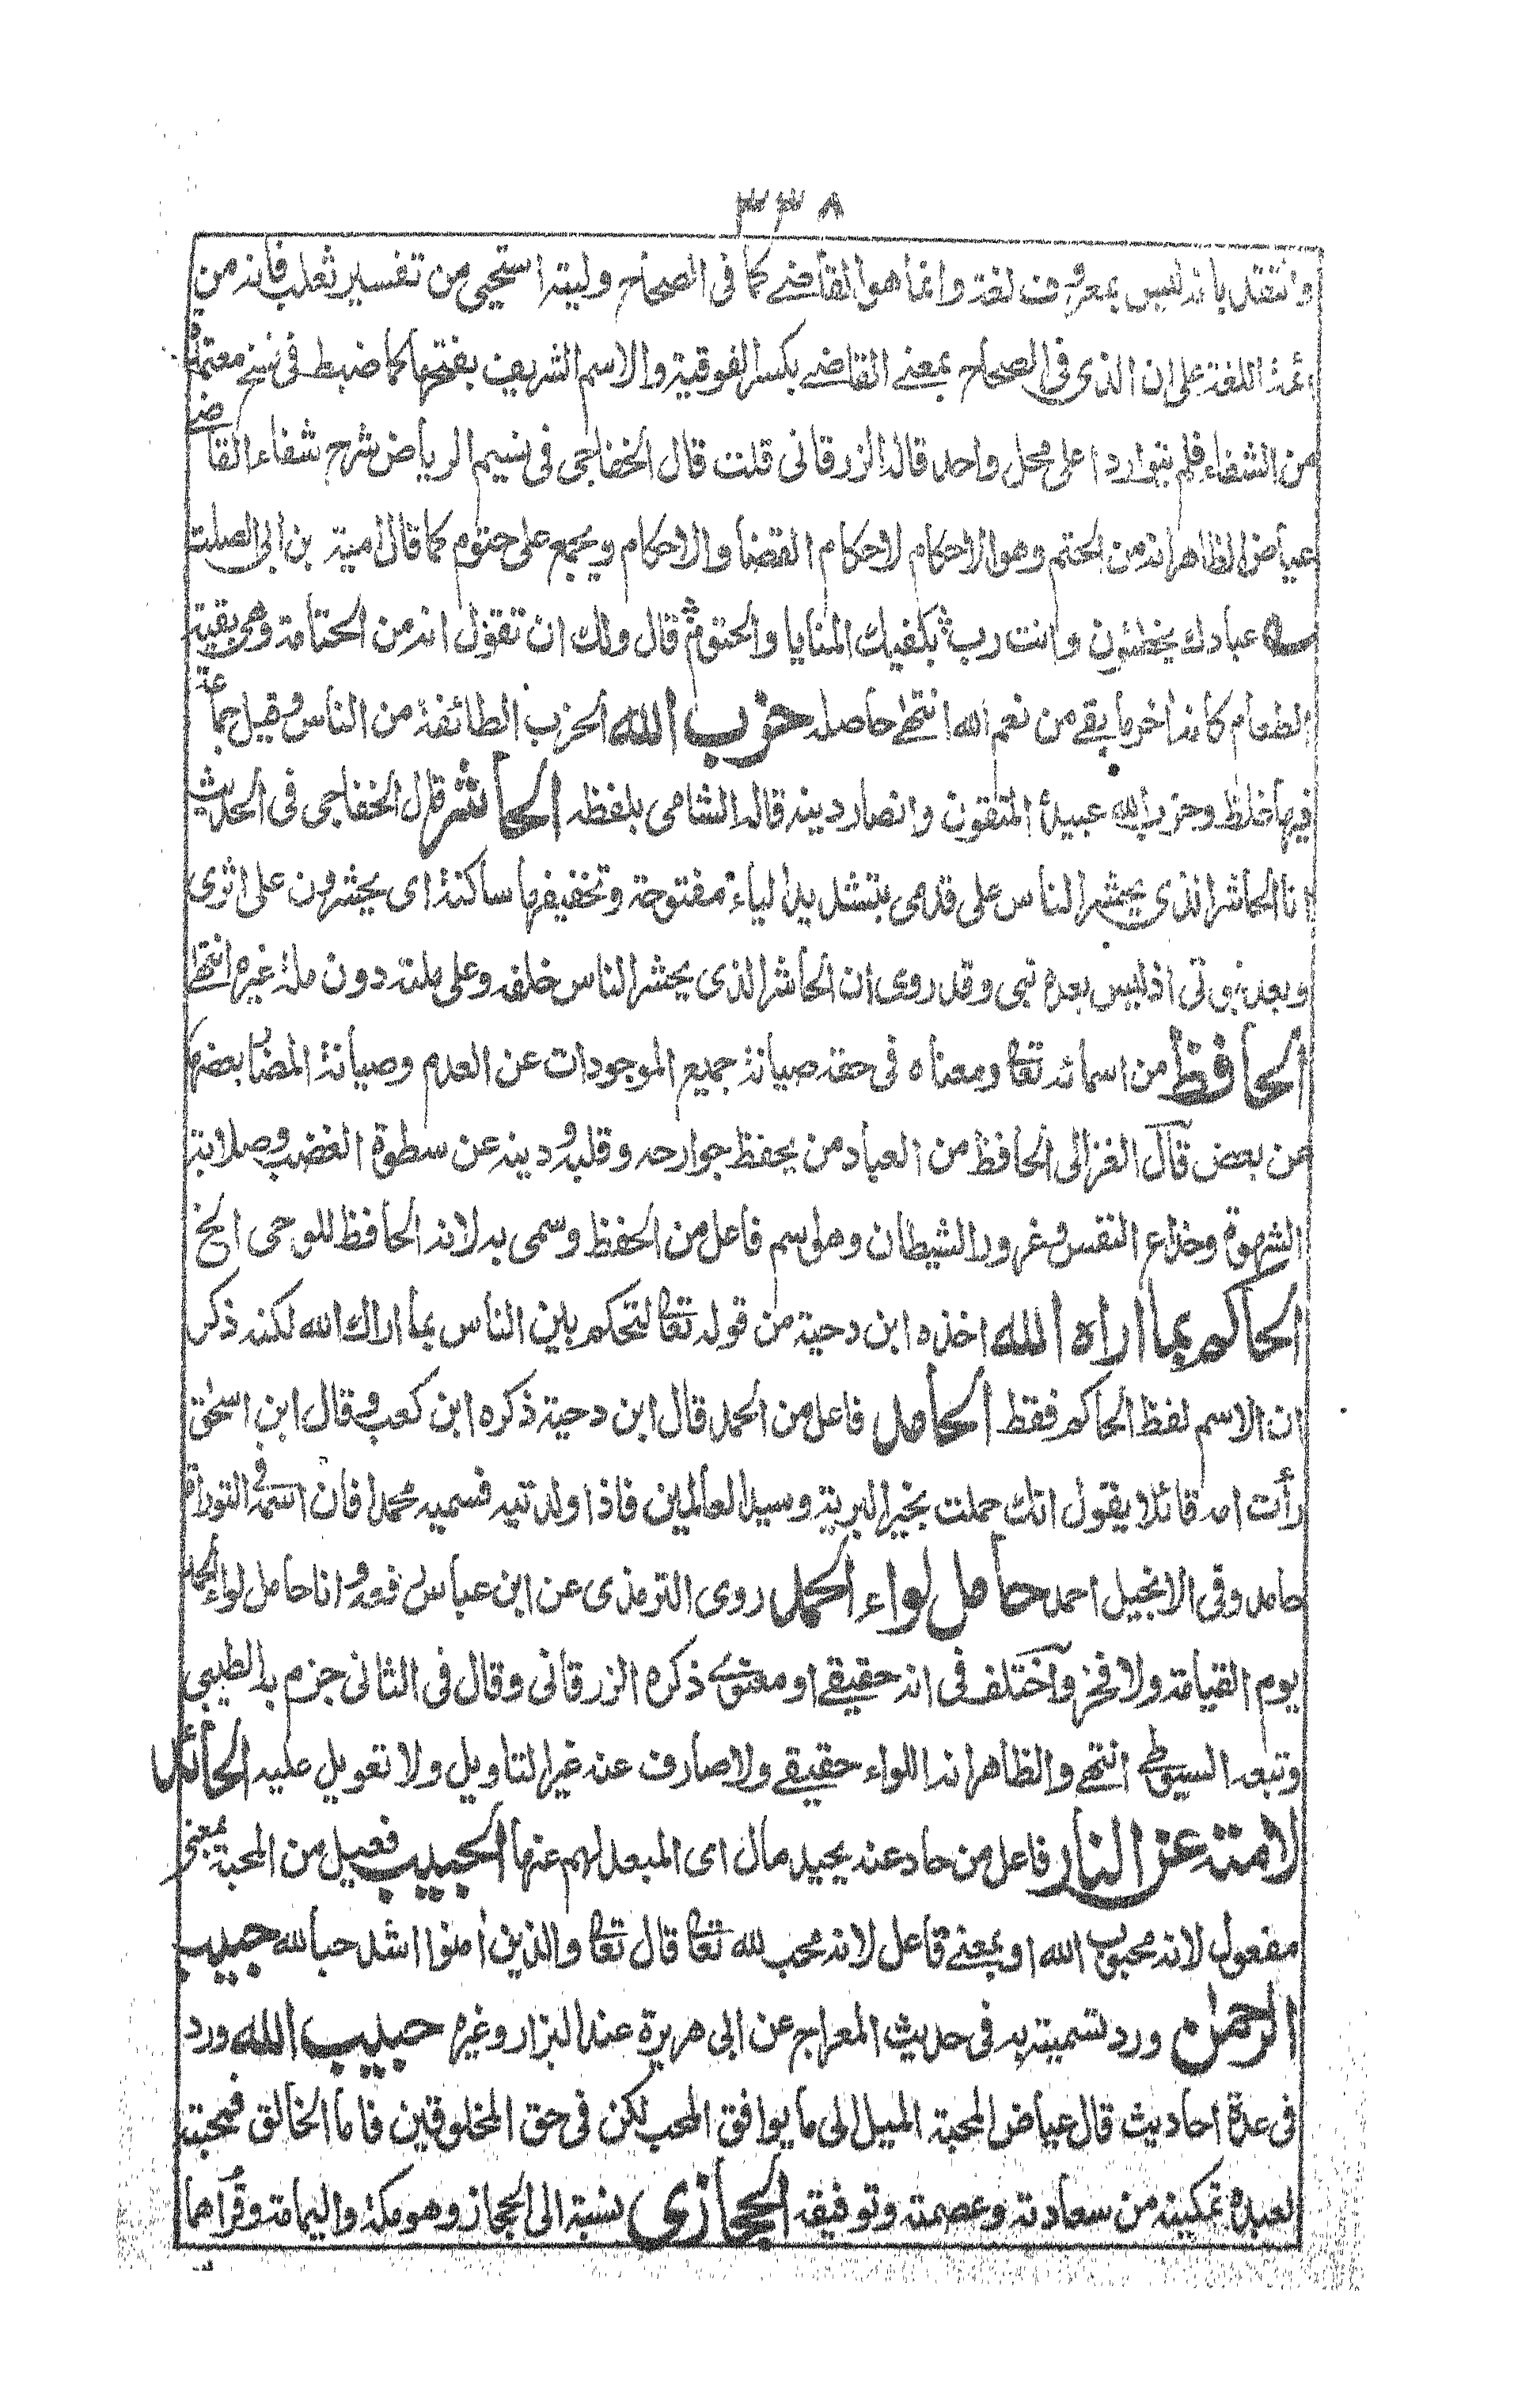 ٣٣٨
وانتقد بانه ليس بمعروف لغة وانما هو القاضے كما فى الصحاح وليته استحيى من تفسير ثعلب فانه من
ائمة اللغة على ان الذى فى الصحاح بمعنے القاضے بكسر الفوقية والاسم الشريف بفتحها كما ضبط فى نسخ معتمدة
من الشفاء فلم يتواردا على محل واحد قاله الزرقانى قلت قال الخفاجى فى نسيم الرياض شرح شفاء القاضے
عياض الظاهر انه من الحتم وهو الاحكام لاحكام القضا والاحكام ويجمع على حتوم كما قال امية بن ابى الصلت
عبادك يخطئون وانت رب بكفيك المنايا والحتوم قال ولك ان تقول انه من الحتامة وهى بقية
الطعام كانه اخر ما بقے من نعم الله انتهٰے حاصله حزب الله الحزب الطائفة من الناس وقيل جماعة
فيها غلظ وحزب الله عبيدهٗ المتقون وانصار دينه قاله الشامى بلفظه الحاشر قال الخفاجى فى الحديث
انا الحاشر الذى يحشر الناس على قدمى بتشديد الياء مفتوحة وتخفيفها ساكنة اى يحشرون على اثرى
وبعد نبوتى اذ ليس بعده نبى وقد روى ان الحاشر الذى يحشر الناس خلفه وعلى ملته دون ملة غيره انتهٰے
الحافظ من اسمائه تعالٰی ومعناه فى حقه صيانة جميع الموجودات عن العدم وصيانة المضاد بعضها
من بعض قال الغزالى الحافظ من العباد من يحفظ جوارحه وقلبه ودينه عن سطوة الغضب وصلابة
الشهوة وخداع النفس وغرور الشيطان وهو اسم فاعل من الحفظ وسمى به لانه الحافظ للوحى الخ
الحاكم بما اراه الله اخذه ابن دحية من قوله تعالٰی لتحكم بين الناس بما اراك الله لكنه ذكر
ان الاسم لفظ الحاكم فقط الحامد فاعل من الحمد قال ابن دحية ذكره ابن كعب وقال ابن اسحٰق
رأت امه قائلا يقول انك حملت بخير البرية وسيد العالمين فاذا ولدتيه فسميه محمدا فان اسمه فى التوراة
حامد وفى الانجيل احمد حامل لواء الحمد روى الترمذى عن ابن عباس رفعه وانا حامل لواء الحمد
يوم القيامة ولا فخر واختلف فى انه حقيقے او معنوى ذكره الزرقانى وقال فى الثانى جزم به الطيبى
وتبعه السيوطى انتهے والظاهر انه اللواء حقيقے ولا صارف عنه غير التاويل ولا تعويل عليه الحائد
لامته عن النار فاعل من حاد عنه يحيد مال اى المبعد لهم عنها الحبيب فعيل من المحبة بمعنى
مفعول لانه محبوب الله او بمعنے فاعل لانه محب لله تعالٰی قال تعالٰی والذين اٰمنوا اشد حبا لله حبيب
الرحمٰن ورد تسميته به فى حديث المعراج عن ابى هريرة عند البزار وغيره حبيب الله ورد
فى عدة احاديث قال عياض المحبة الميل الى ما يوافق المحب لكن فى حق المخلوقين فاما الخالق فمحبته
لعبده تمكينه من سعادته وعصمته وتوفيقه الحجازى نسبة الى الحجاز وهو مكة واليمامة وقراهما